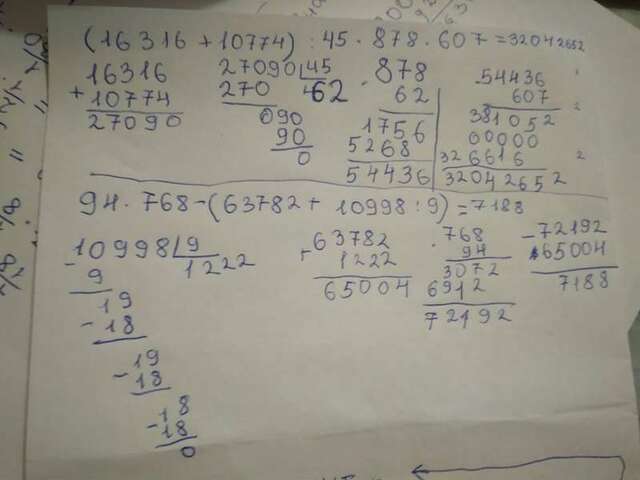 (16316+10774):45·878·607=32042652
16316
+10774
27090
27090|45
270 62
090
90
0
·878
62
1756
5268
54436
·54436
607
381052
00000
326616
32042652
94·768-(63782+10998:9)=7188
10998|9
-9 1222
19
-18
-19
18
-18
18
0
+63782
1222
65004
·768
94
3072
6912
72192
-72192
65004
7188